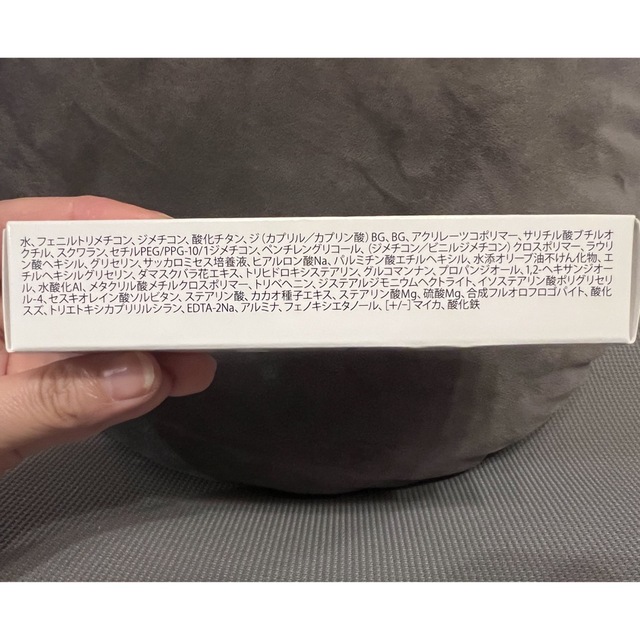 水、フェニルトリメチコン、ジメチコン、酸化チタン、ジ（カプリル／カプリン酸）BG、BG、アクリレーツコポリマー、サリチル酸ブチルオ
クチル、スクワラン、セチルPEG/PPG-10/1ジメチコン、ペンチレングリコール、（ジメチコン/ビニルジメチコン）クロスポリマー、ラウリ
ン酸ヘキシル、グリセリン、サッカロミセス培養液、ヒアルロン酸Na、パルミチン酸エチルヘキシル、水添オリーブ油不けん化物、エ
チルヘキシルグリセリン、ダマスクバラ花エキス、トリヒドロキシステアリン、グルコマンナン、プロパンジオール、1,2-ヘキサンジオー
ル、水酸化Al、メタクリル酸メチルクロスポリマー、トリベヘニン、ジステアルジモニウムヘクトライト、イソステアリン酸ポリグリセリ
ル-4、セスキオレイン酸ソルビタン、ステアリン酸、カカオ種子エキス、ステアリン酸Mg、硫酸Mg、合成フルオロフロゴパイト、酸化
スズ、トリエトキシカプリリルシラン、EDTA-2Na、アルミナ、フェノキシエタノール、[+/-]マイカ、酸化鉄